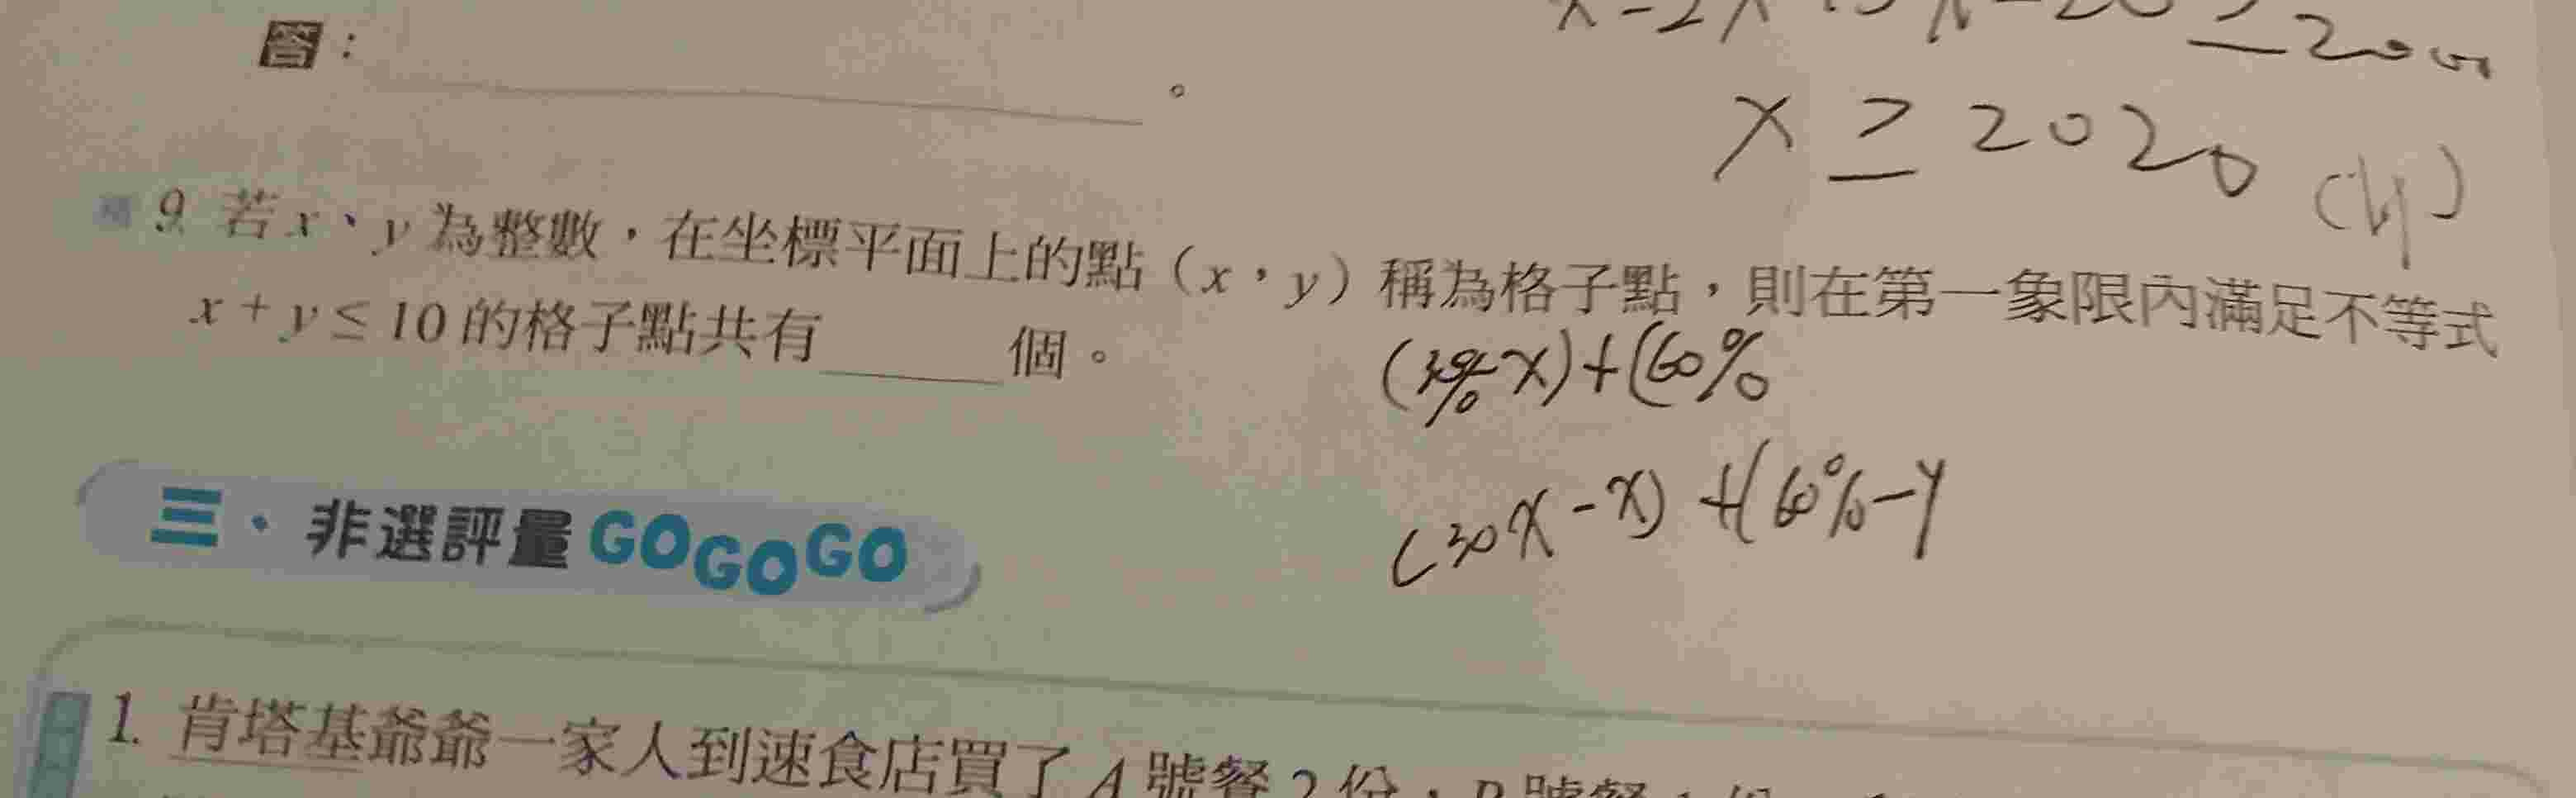 答：　　　　　　。
x ≥ 2020
9. 若 x、y 為整數，在坐標平面上的點（x，y）稱為格子點，則在第一象限內滿足不等式
x + y ≤ 10 的格子點共有　　　個。
x)+(60%
(30x-x)+(60%-y
三・非選評量GOGOGO
1. 肯塔基爺爺一家人到速食店買了 A 號餐 2 份，B 號餐